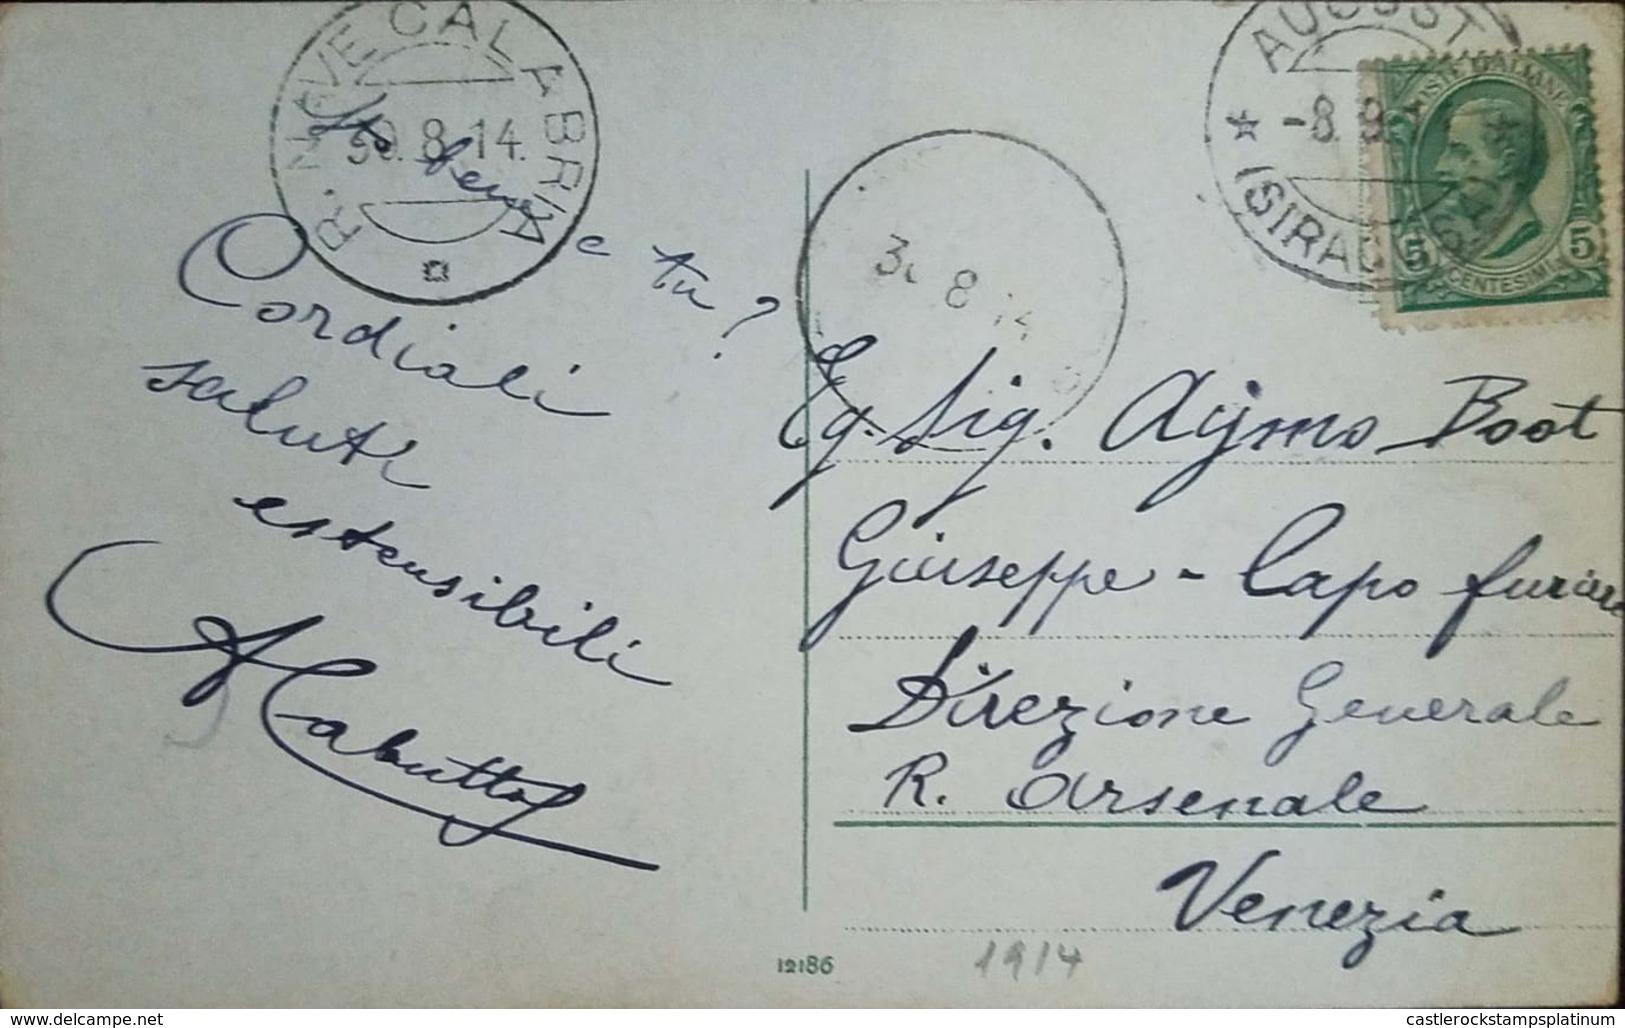 R. NAVE CALABRIA
30.8.14.
Sto bene e tu?
Cordiali
saluti
estensibili
ACabutto
30 8 14
AUGUST
-8. 9.
*ISIRAC
POSTE ITALIANE
5 CENTESIMI 5
Eg. Sig. Aymo Boot
Giuseppe - Capo furiere
Direzione Generale
R. Arsenale
Venezia
12186
1914
castlerockstampsplatinum